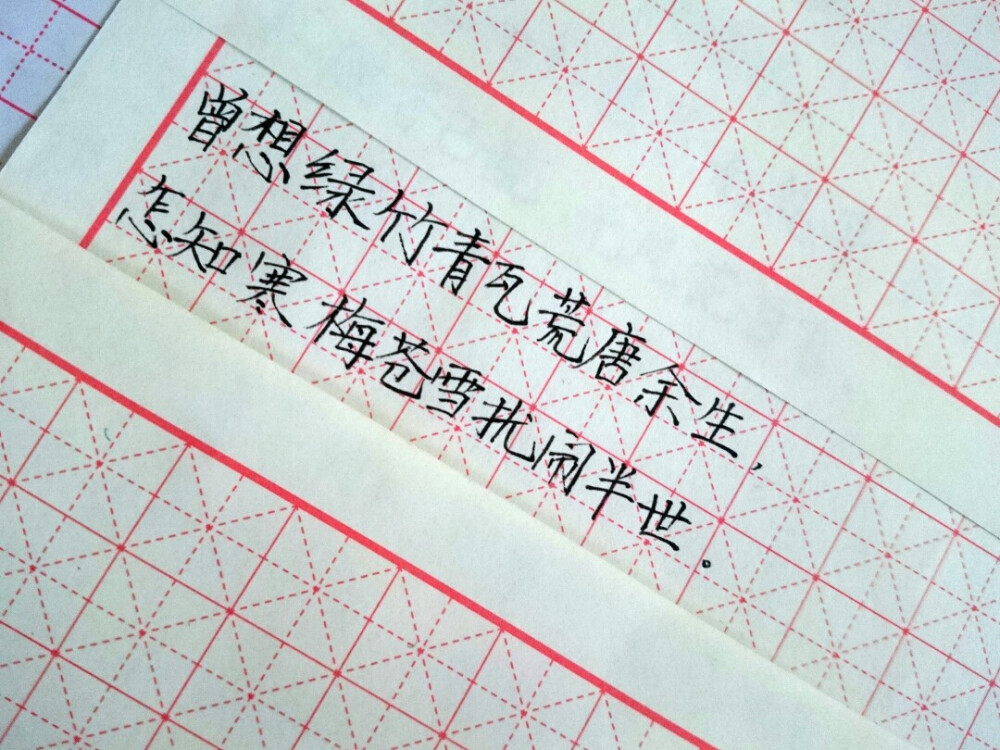 曾想绿竹青瓦荒唐余生，
怎知寒梅苍雪扰闹半世。